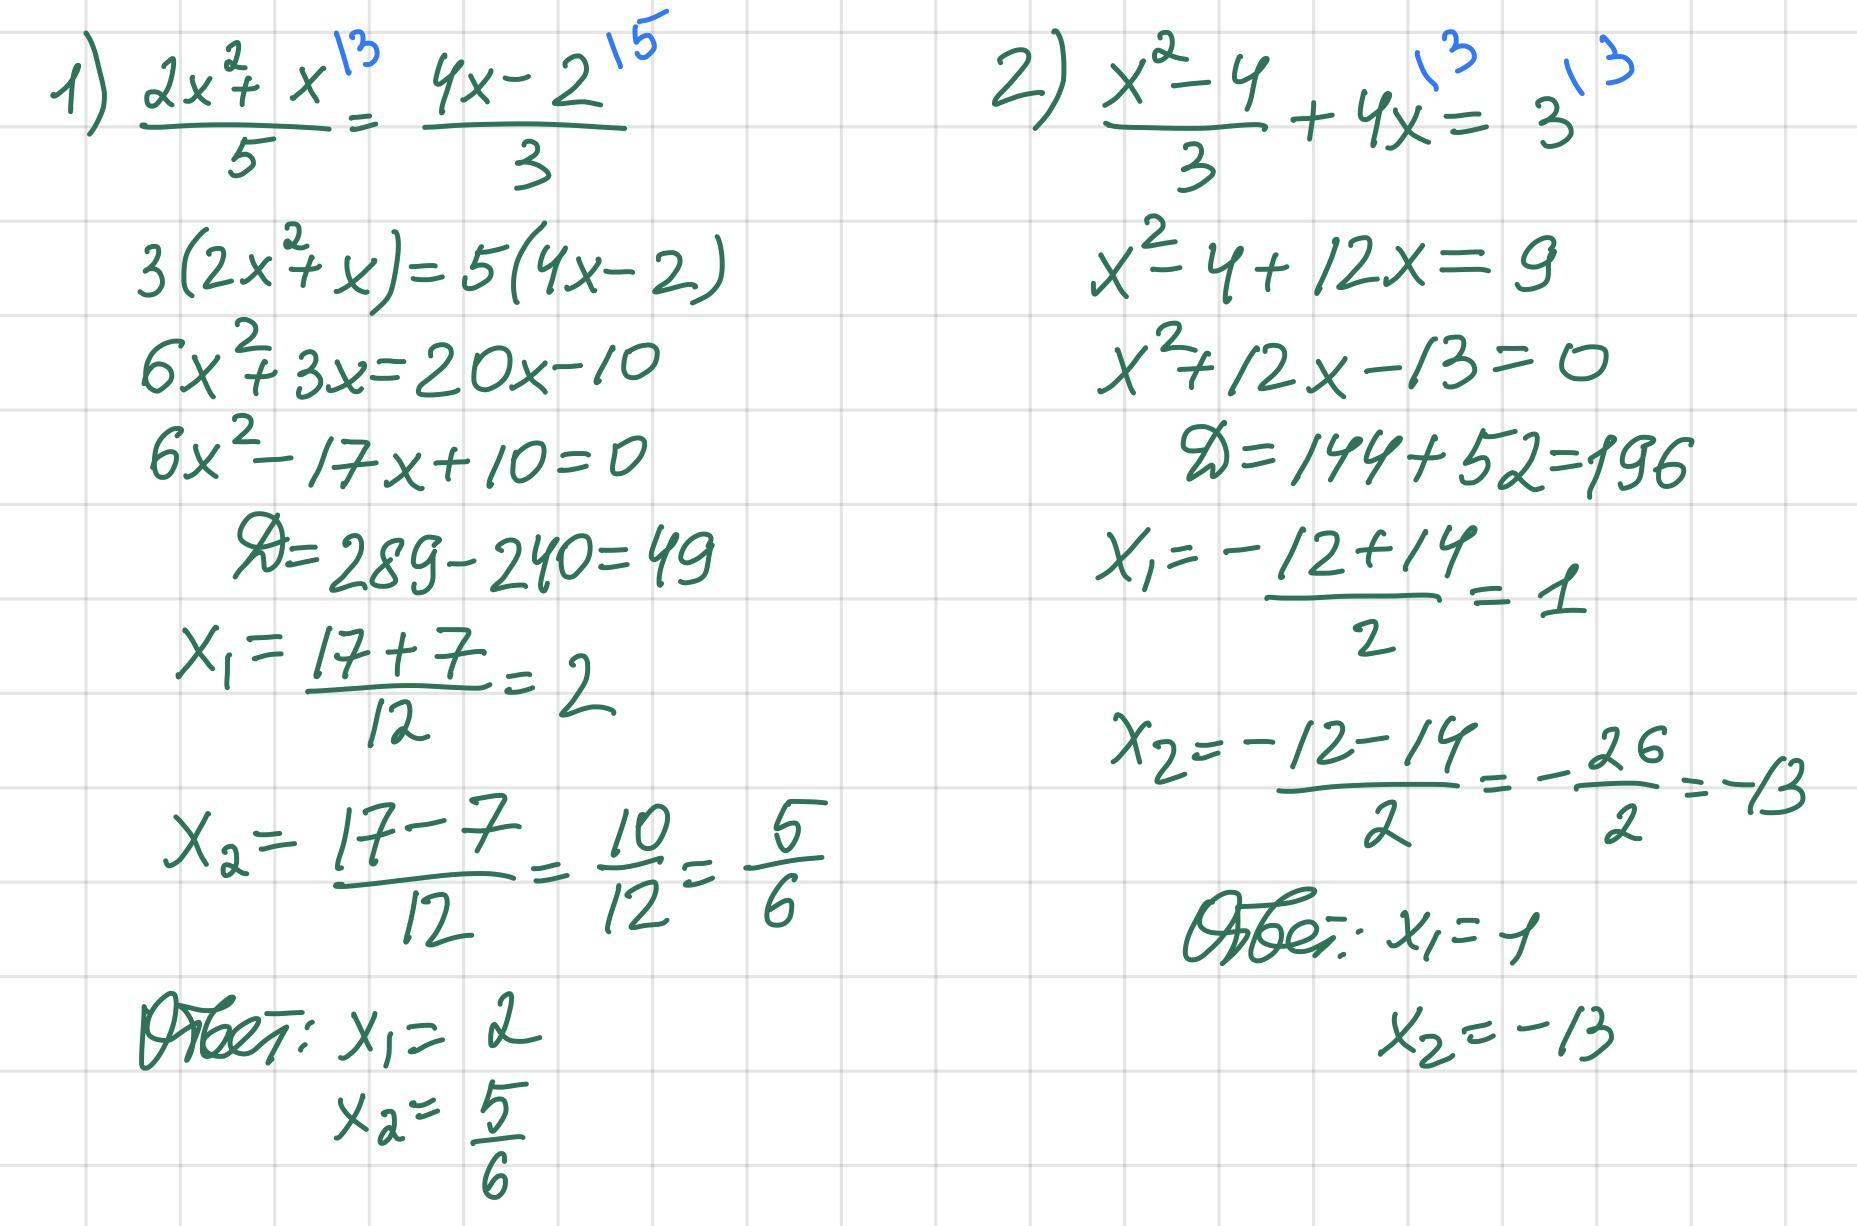 1) (2x² + x)/5 \3 = (4x - 2)/3 \5
3(2x² + x) = 5(4x - 2)
6x² + 3x = 20x - 10
6x² - 17x + 10 = 0
D = 289 - 240 = 49
x₁ = (17 + 7)/12 = 2
x₂ = (17 - 7)/12 = 10/12 = 5/6
Ответ: x₁ = 2
x₂ = 5/6
2) (x² - 4)/3 + 4x \3 = 3 \3
x² - 4 + 12x = 9
x² + 12x - 13 = 0
D = 144 + 52 = 196
x₁ = -(12 + 14)/2 = 1
x₂ = -(12 - 14)/2 = -26/2 = -13
Ответ: x₁ = 1
x₂ = -13